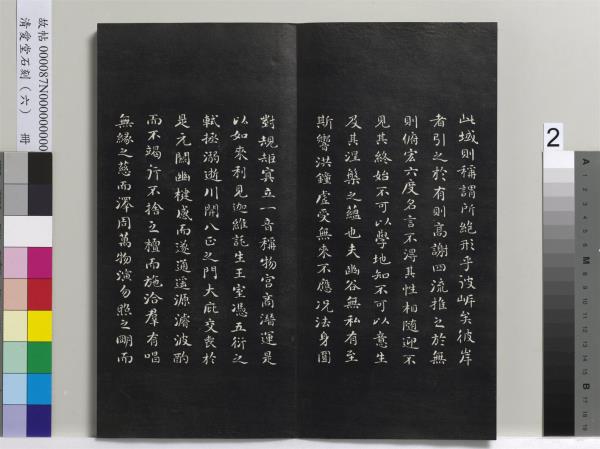 此域則稱謂所絕形乎彼岍矣彼岸
者引之於有則高謝四流推之於無
則俯宏六度名言不得其性相隨迎不
見其終始不可以學地知不可以意生
及其涅槃之蘊也夫幽谷無私有至
斯響洪鐘虛受無來不應况法身圓
對規矩冥立一音稱物宮商潛運是
以如來利見迦維託生王室馮五衍之
軾拯溺逝川開八正之門大庇交喪於
是元關幽楗感而遂通遙源濬波酌
而不竭行不捨之檀而施洽羣有唱
無緣之慈而澤周萬物演勿照之明而
故帖 000087N000000000
清愛堂石刻(六) 冊
2
A
M
B